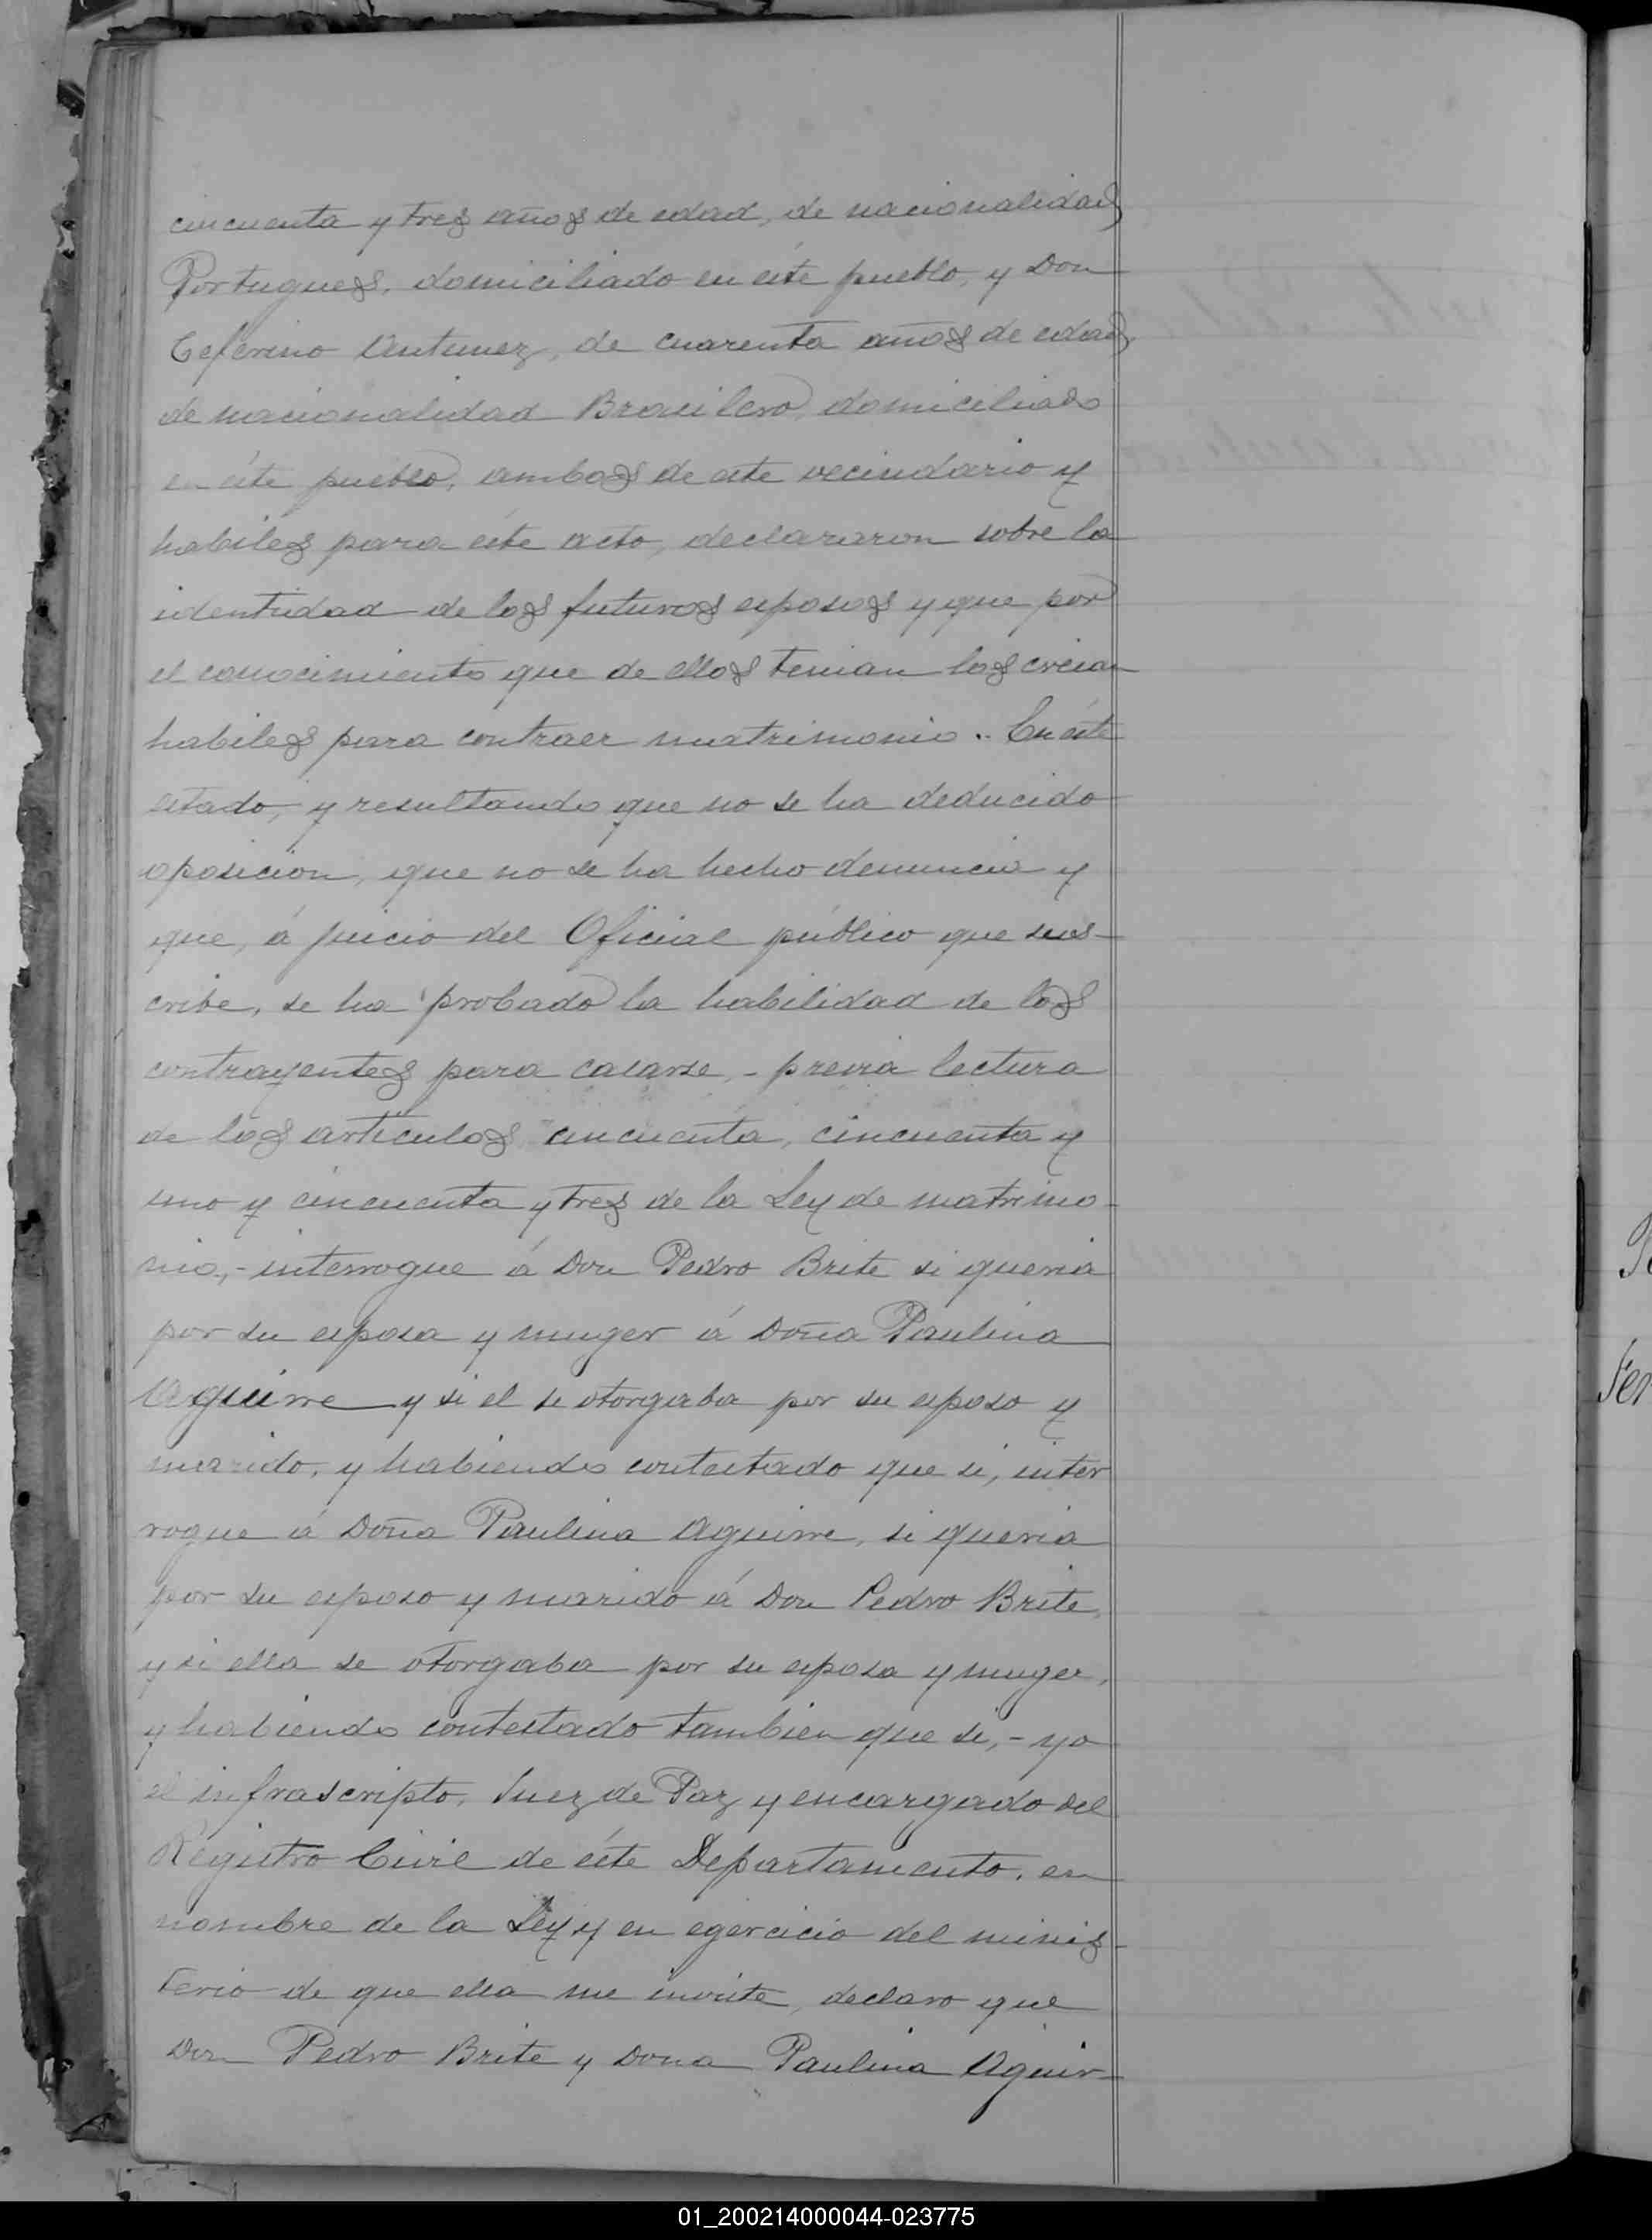 cincuenta y tres años de edad, de nacionalidad
Portugues, domiciliado en éste pueblo, y Don
Ceferino Antunez, de cuarenta años de edad,
de nacionalidad Brasilero, domiciliado
en éste pueblo, ambos de este vecindario y
habiles para éste acto, declararon sobre la
identidad de los futuros esposos y que por
el conocimiento que de ellos tenian los creian
habiles para contraer matrimonio.. En éste
estado, y resultando que no se ha deducido
oposicion, que no se ha hecho denuncia y
que, á juicio del Oficial público que sus-
cribe, se ha probado la habilidad de los
contrayentes para casarse, - previa lectura
de los artículos cincuenta, cincuenta y
uno y cincuenta y tres de la Ley de matrimo-
nio, - interrogue á Don Pedro Brite si queria
por su esposa y muger á Doña Paulina
Aguirre y si el se otorgaba por su esposo y
marido, y habiendo contestado que si, inter
rogue á Doña Paulina Aguirre, si queria
por su esposo y marido á Don Pedro Brite,
y si ella se otorgaba por su esposa y muger,
y habiendo contestado tambien que si, - yo
el infrascripto, Juez de Paz y encargado del
Registro Civil de éste Departamento, en
nombre de la Ley y en egercicio del minis-
terio de que ella me inviste, declaro que
Don Pedro Brite y Dona Paulina Aguir-
01_200214000044-023775